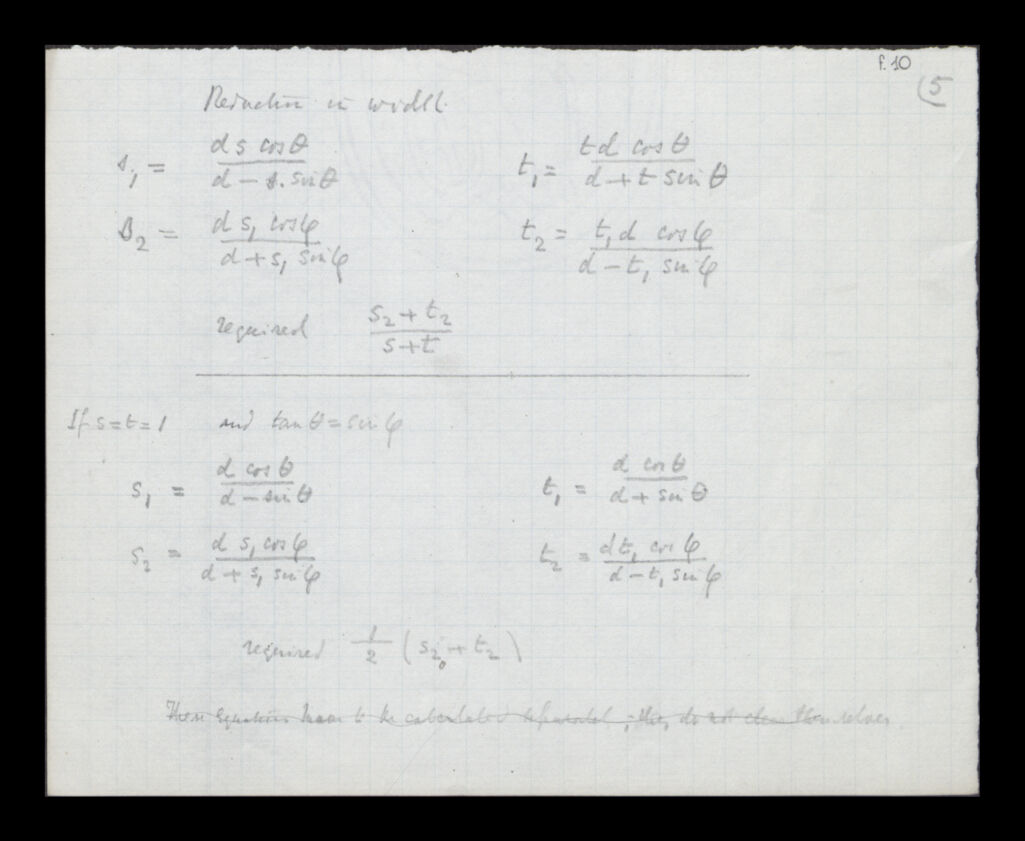 f. 10
(5
Reduction in width
s₁ = ds cosθ / (d − s. sinθ)    t₁ = td cosθ / (d + t sinθ)
s₂ = ds₁ cosφ / (d + s₁ sinφ)    t₂ = t₁d cosφ / (d − t₁ sinφ)
required (s₂ + t₂) / (s + t)
If s = t = 1 and tanθ = sinφ
s₁ = d cosθ / (d − sinθ)    t₁ = d cosθ / (d + sinθ)
s₂ = d s₁ cosφ / (d + s₁ sinφ)    t₂ = dt₁ cosφ / (d − t₁ sinφ)
required 1/2 (s₂ + t₂)
These Equations have to be calculated separately ; they do not themselves.